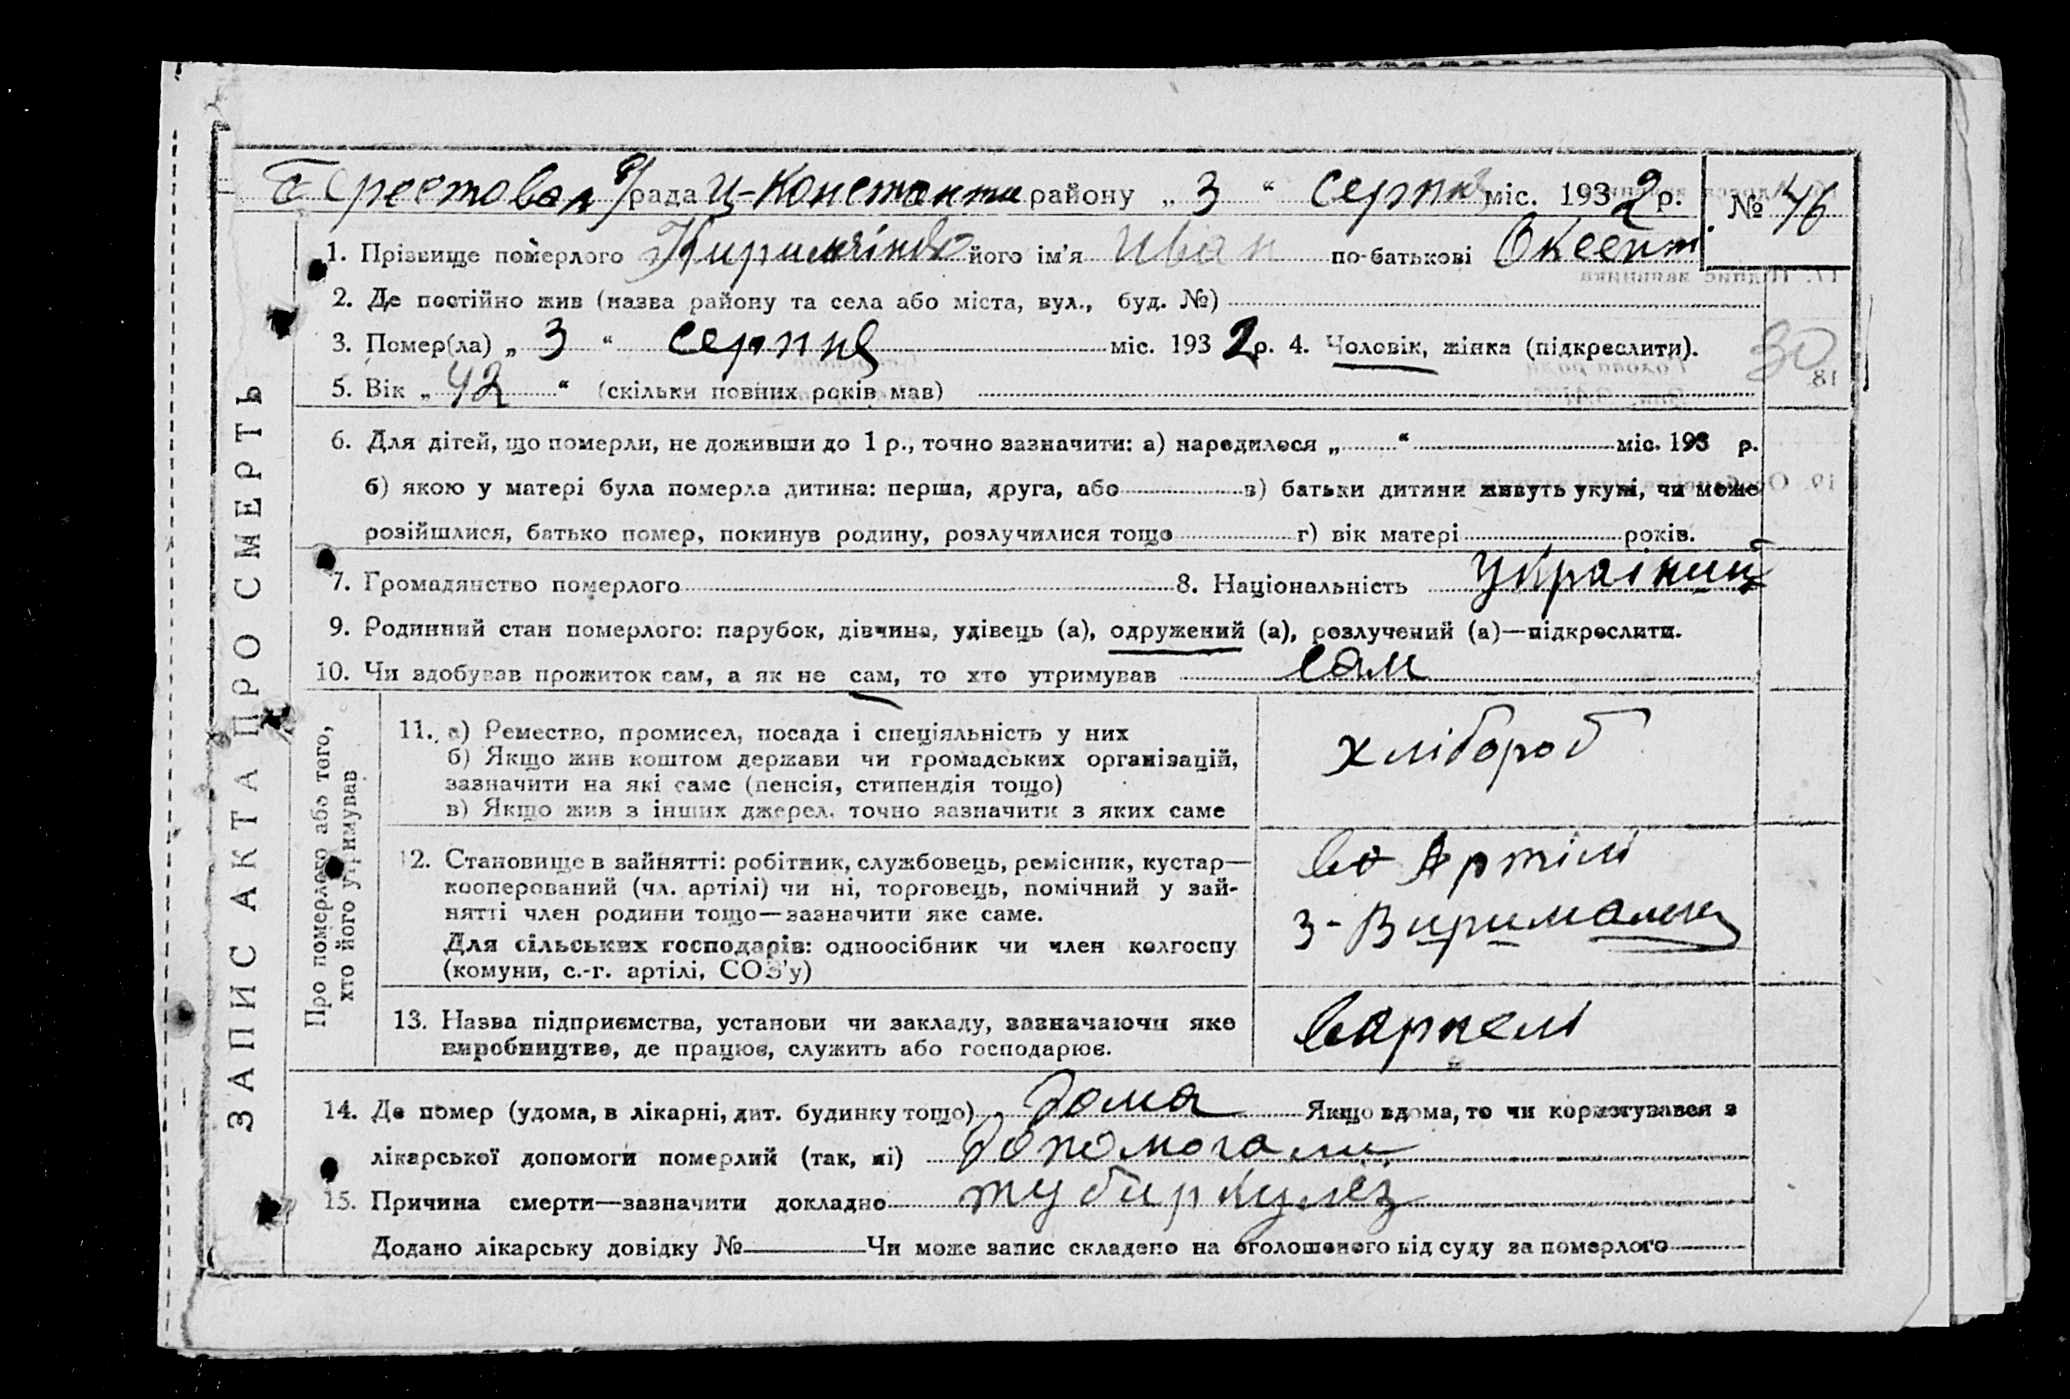 рада Ц-Константи району „ 3 “ серпня міс. 1932 р. № 46
1. Прізвище померлого його ім'я Иван по-батькові
2. Де постійно жив (назва району та села або міста, вул., буд. №)
3. Помер(ла) „ 3 “ серпня міс. 1932 р. 4. Чоловік, жінка (підкреслити).
30
5. Вік „ 42 “ (скільки повних років мав)
6. Для дітей, що померли, не доживши до 1 р., точно зазначити: а) народилося „ “ міс. 193 р.
б) якою у матері була померла дитина: перша, друга, або в) батьки дитини живуть укупі, чи може
розійшлися, батько помер, покинув родину, розлучилися тощо г) вік матері років.
7. Громадянство померлого 8. Національність Украінец
9. Родинний стан померлого: парубок, дівчина, удівець (а), одружений (а), розлучений (а)—підкреслити.
10. Чи здобував прожиток сам, а як не сам, то хто утримував сам
ЗАПИС АКТА ПРО СМЕРТЬ
Про померлого або того,
хто його утримував
11. а) Ремество, промисел, посада і спеціяльність у них
б) Якщо жив коштом держави чи громадських організацій,
зазначити на які саме (пенсія, стипендія тощо)
в) Якщо жив з інших джерел, точно зазначити з яких саме
хлібороб
12. Становище в зайнятті: робітник, службовець, ремісник, кустар—
кооперований (чл. артілі) чи ні, торговець, помічний у зай-
нятті член родини тощо—зазначити яке саме.
Для сільських господарів: одноосібник чи член колгоспу
(комуни, с.-г. артілі, СОЗ'у)
Артілі
13. Назва підприємства, установи чи закладу, зазначаючи яке
виробництво, де працює, служить або господарює.
14. Де помер (удома, в лікарні, дит. будинку тощо) дома Якщо вдома, то чи користувався з
лікарської допомоги померлий (так, ні) допомогали
15. Причина смерти—зазначити докладно тубиркулёз
Додано лікарську довідку № Чи може запис складено на оголошеного від суду за померлого